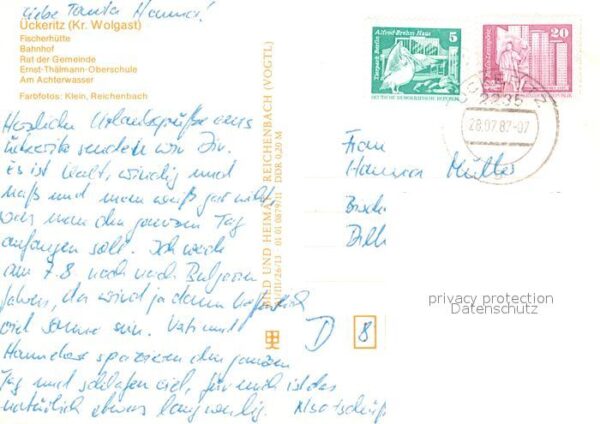 Liebe Tante Hanna!
Ückeritz (Kr. Wolgast)
Fischerhütte
Bahnhof
Rat der Gemeinde
Ernst-Thälmann-Oberschule
Am Achterwasser
Farbfotos: Klein, Reichenbach
Herzliche Urlaubsgrüße aus
Ückeritz senden wir Dir.
Es ist kalt, windig und
naß und man weiß gar nicht
was man den ganzen Tag
anfangen soll. Ich werde
am 7.8 noch nach Bulgarien
fahren, da wird ja dann hoffentlich
viel Sonne sein. Vati und
spazieren den ganzen
Tag und schlafen viel, für mich ist das
natürlich etwas langweilig. Also tschüß
BILD UND HEIMAT REICHENBACH (VOGTL)
III/26/13 01 01 0879/11 DDR 0,20 M
Tierpark Berlin Alfred-Brehm-Haus
5
DEUTSCHE DEMOKRATISCHE REPUBLIK
20
2235
28.07.82-07
Frau
Hanna Müller
D 8
privacy protection
Datenschutz